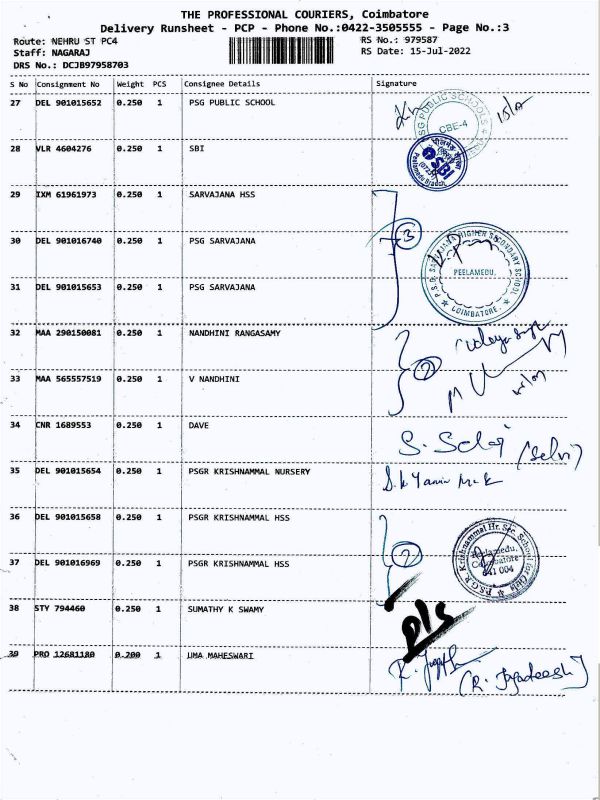 THE PROFESSIONAL COURIERS, Coimbatore
Delivery Runsheet - PCP - Phone No.:0422-3505555 - Page No.:3
Route: NEHRU ST PC4 RS No.: 979587
Staff: NAGARAJ RS Date: 15-Jul-2022
DRS No.: DCJB97958703
S No Consignment No Weight PCS Consignee Details Signature
27 DEL 901015652 0.250 1 PSG PUBLIC SCHOOL
PSG PUBLIC SCHOOLS
CBE-4
28 VLR 4604276 0.250 1 SBI
SBI
Peelamedu Branch
29 IXM 61961973 0.250 1 SARVAJANA HSS
3
30 DEL 901016740 0.250 1 PSG SARVAJANA
P.S.G. SARVAJANA HIGHER SECONDARY SCHOOL
PEELAMEDU,
COIMBATORE.
31 DEL 901015653 0.250 1 PSG SARVAJANA
32 MAA 290150081 0.250 1 NANDHINI RANGASAMY
2
33 MAA 565557519 0.250 1 V NANDHINI
34 CNR 1689553 0.250 1 DAVE
(Selvi)
35 DEL 901015654 0.250 1 PSGR KRISHNAMMAL NURSERY
36 DEL 901015658 0.250 1 PSGR KRISHNAMMAL HSS
2
P.S.G.R. Krishnammal Hr. Sec. School for Girls
Peelamedu,
Coimbatore
641 004
37 DEL 901016969 0.250 1 PSGR KRISHNAMMAL HSS
38 STY 794460 0.250 1 SUMATHY K SWAMY
D/S
39 PRO 12681180 0.200 1 UMA MAHESWARI
(R. Jagadeesh)